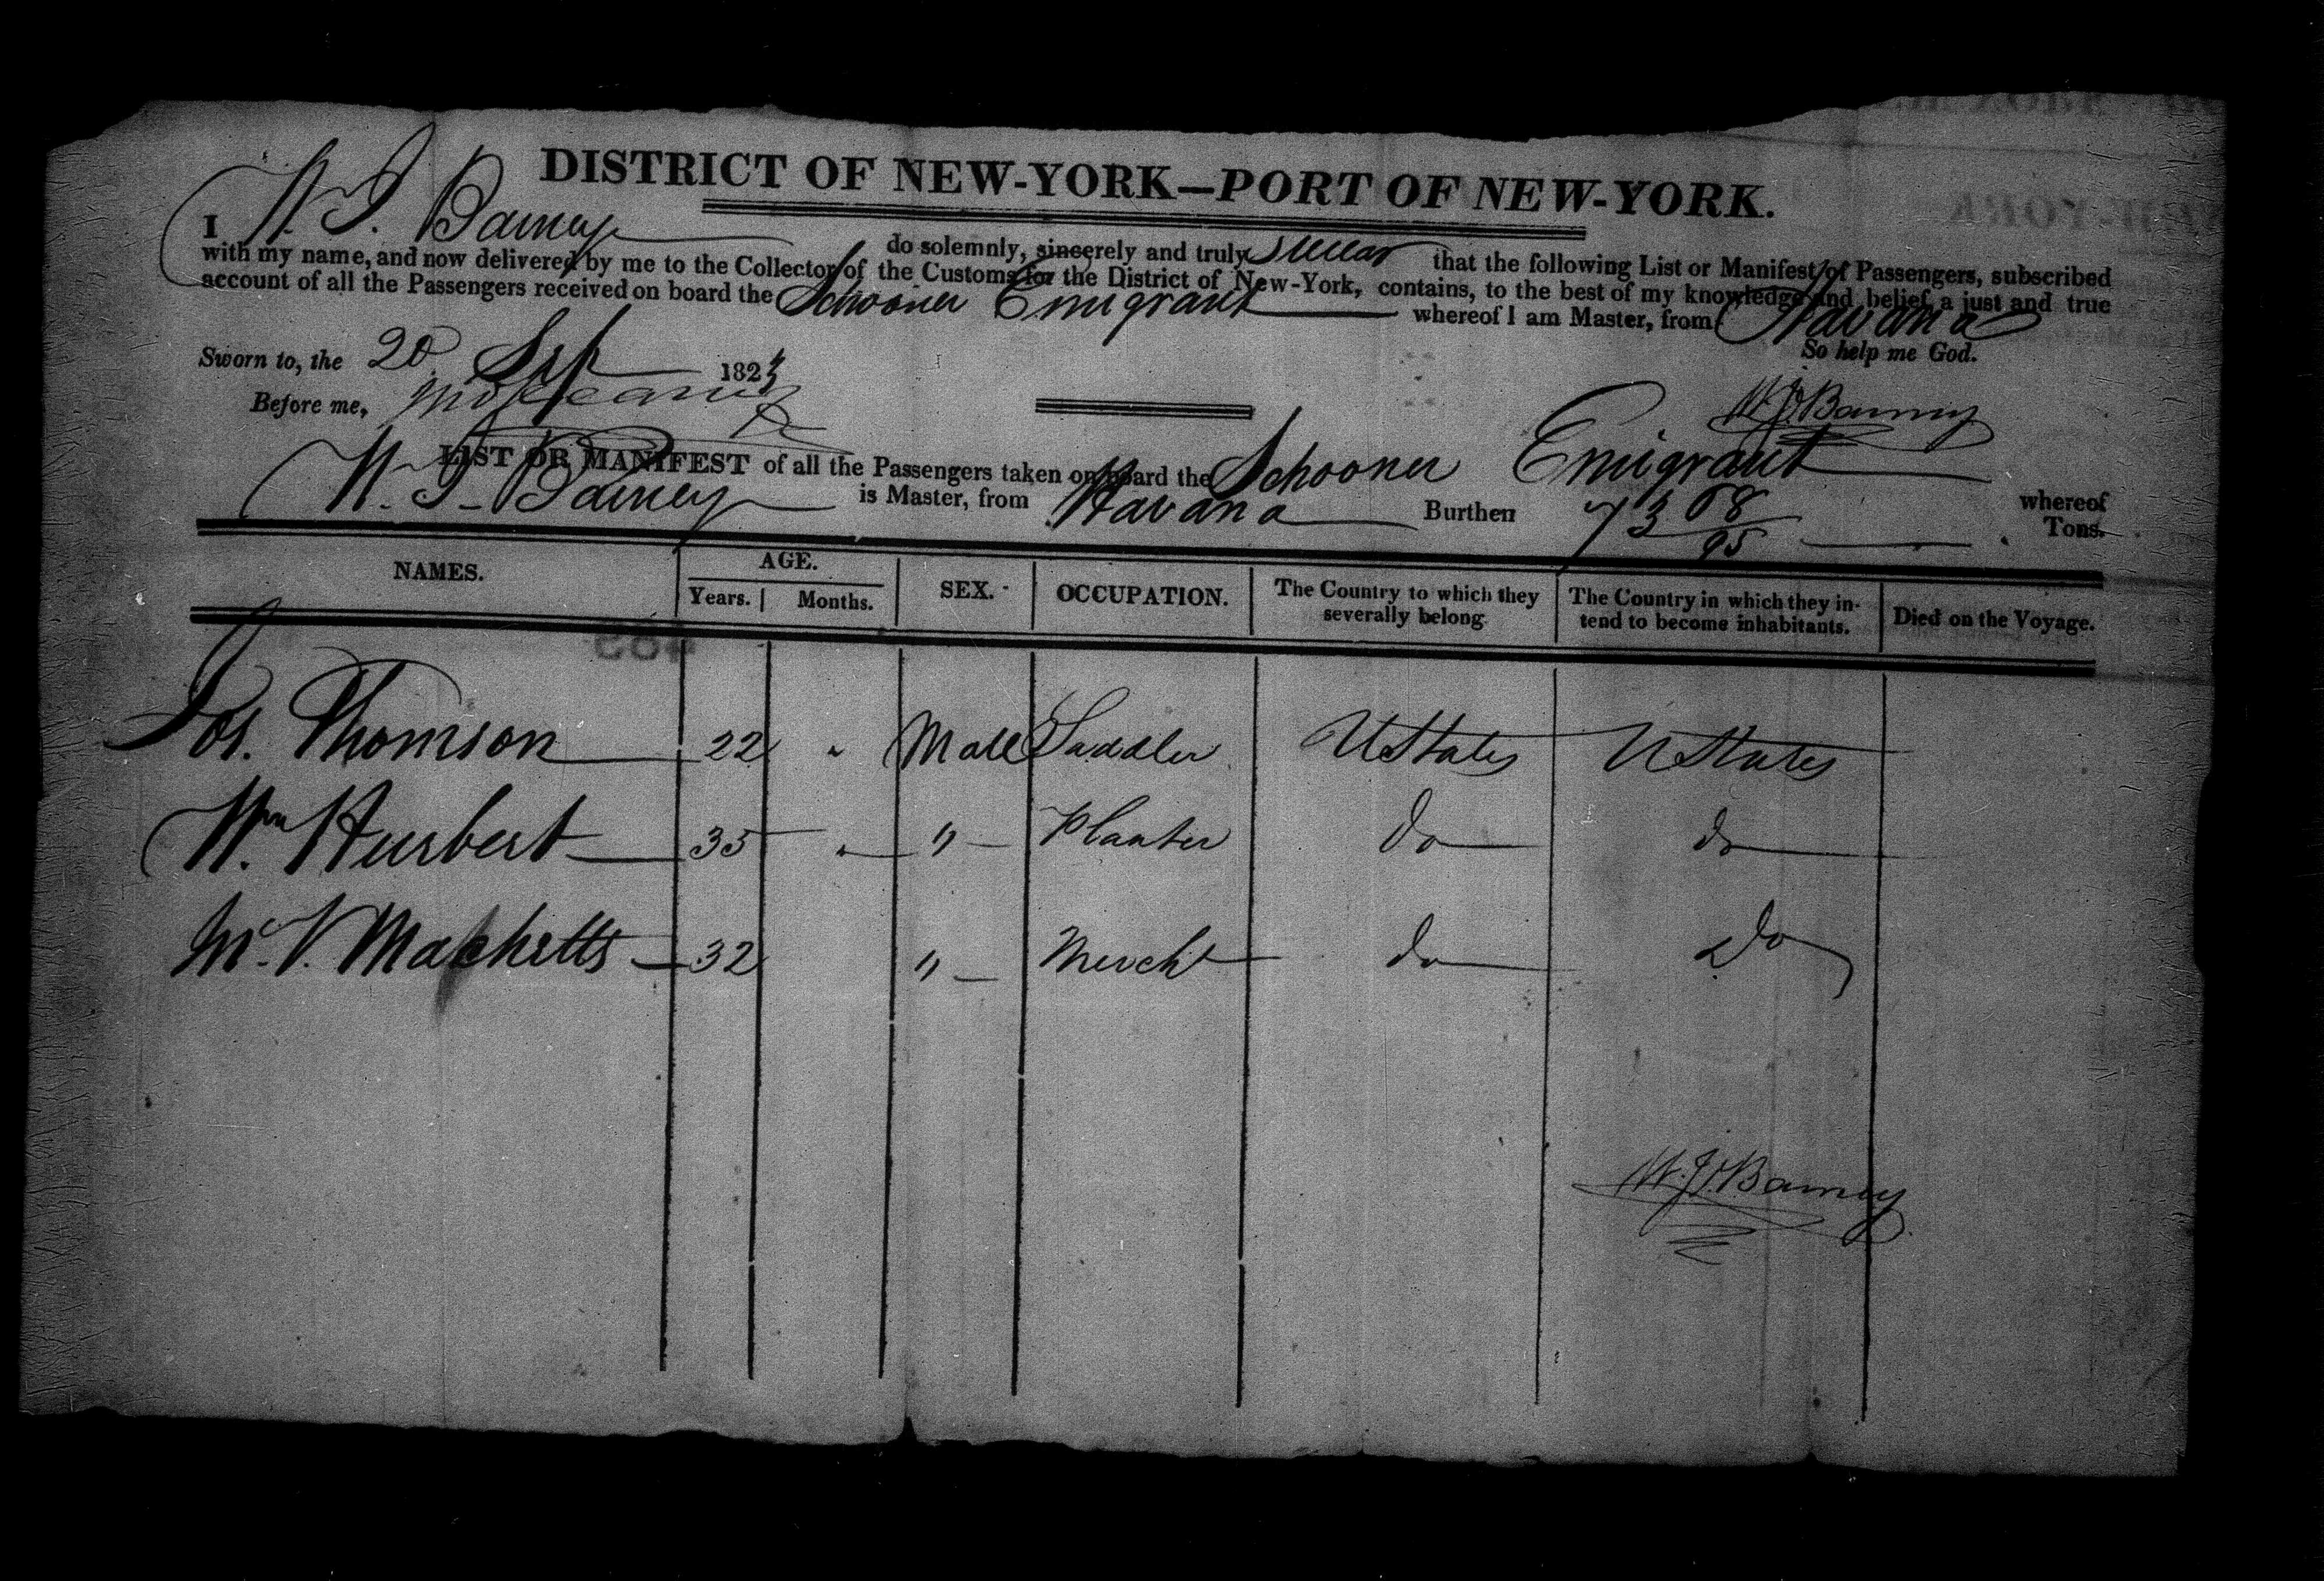 DISTRICT OF NEW-YORK—PORT OF NEW-YORK.
I W. J. Barney do solemnly, sincerely and truly swear that the following List or Manifest of Passengers, subscribed
with my name, and now delivered by me to the Collector of the Customs for the District of New-York, contains, to the best of my knowledge and belief, a just and true
account of all the Passengers received on board the Schooner Emigrant whereof I am Master, from Havana
So help me God.
Sworn to, the 20 Sep 182
Before me,
W. J. Barney
LIST OR MANIFEST of all the Passengers taken on board the Schooner Emigrant whereof
W. J. Barney is Master, from Havana Burthen 73 68/95 Tons.
NAMES. AGE. SEX. OCCUPATION. The Country to which they severally belong The Country in which they intend to become inhabitants. Died on the Voyage.
Years. Months.
Jos. Thomson 22 " Male Saddler UStates UStates
Wm Hurbert 35 " " Planter do do
M. V. Machetts 32 " Mercht do Do
W. J. Barney